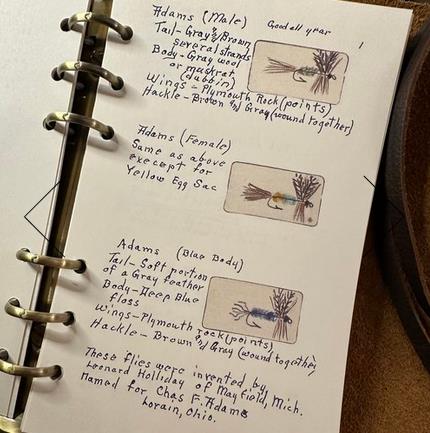 Adams (Male)
Good all year
1
Tail - Gray & Brown
several strands
Body - Gray wool
or muskrat
(dubbin)
Wings - Plymouth Rock (points)
Hackle - Brown & Gray (wound together)
Adams (Female)
Same as above
execept for
Yellow Egg Sac
Adams (Blue Body)
Tail - Soft portion
of a Gray feather
Body - Deep Blue
floss
Wings - Plymouth rock (points)
Hackle - Brown & Gray (wound together)
These flies were invented by
Leonard Holliday of Mayfield, Mich.
Named for Chas F. Adams
Lorain, Ohio.